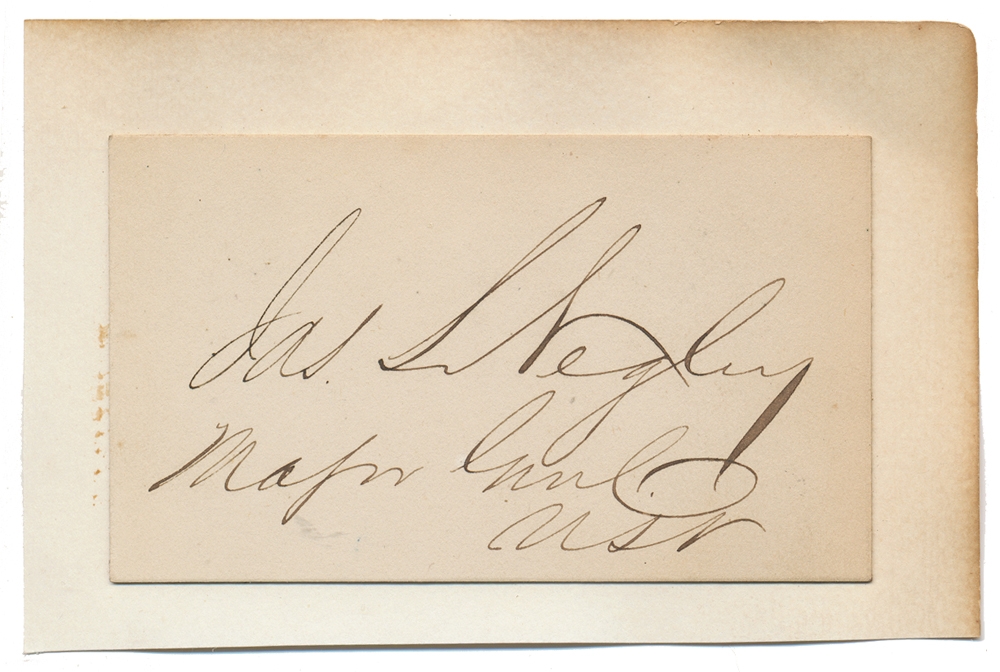 Jas. S Negley
Major Genl.
USV